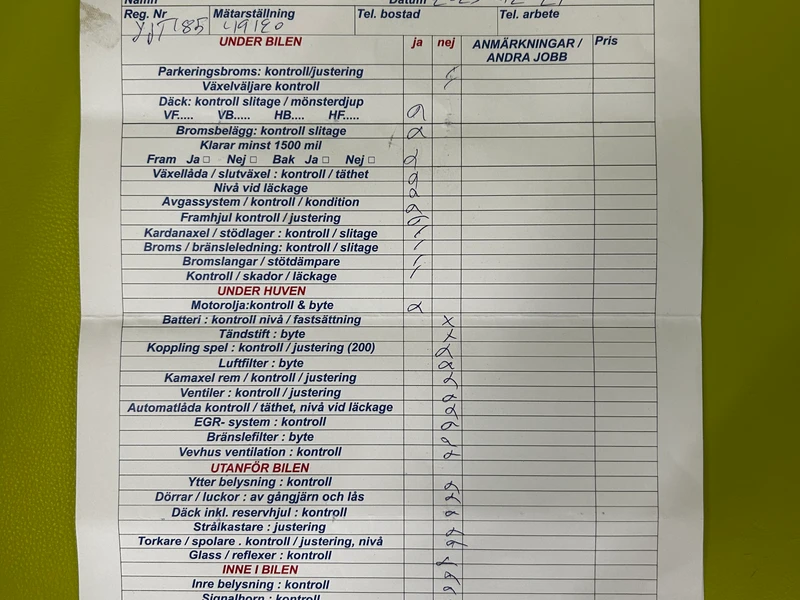 Namn Datum
Reg. Nr Mätarställning Tel. bostad Tel. arbete
UNDER BILEN ja nej ANMÄRKNINGAR / Pris
ANDRA JOBB
Parkeringsbroms: kontroll/justering
Växelväljare kontroll
Däck: kontroll slitage / mönsterdjup
VF..... VB..... HB.... HF.....
Bromsbelägg: kontroll slitage
Klarar minst 1500 mil
Fram Ja □ Nej □ Bak Ja □ Nej □
Växellåda / slutväxel : kontroll / täthet
Nivå vid läckage
Avgassystem / kontroll / kondition
Framhjul kontroll / justering
Kardanaxel / stödlager : kontroll / slitage
Broms / bränsleledning: kontroll / slitage
Bromslangar / stötdämpare
Kontroll / skador / läckage
UNDER HUVEN
Motorolja:kontroll & byte
Batteri : kontroll nivå / fastsättning x
Tändstift : byte x
Koppling spel : kontroll / justering (200)
Luftfilter : byte
Kamaxel rem / kontroll / justering
Ventiler : kontroll / justering
Automatlåda kontroll / täthet, nivå vid läckage
EGR- system : kontroll
Bränslefilter : byte
Vevhus ventilation : kontroll
UTANFÖR BILEN
Ytter belysning : kontroll
Dörrar / luckor : av gångjärn och lås
Däck inkl. reservhjul : kontroll
Strålkastare : justering
Torkare / spolare . kontroll / justering, nivå
Glass / reflexer : kontroll
INNE I BILEN
Inre belysning : kontroll
Signalhorn : kontroll